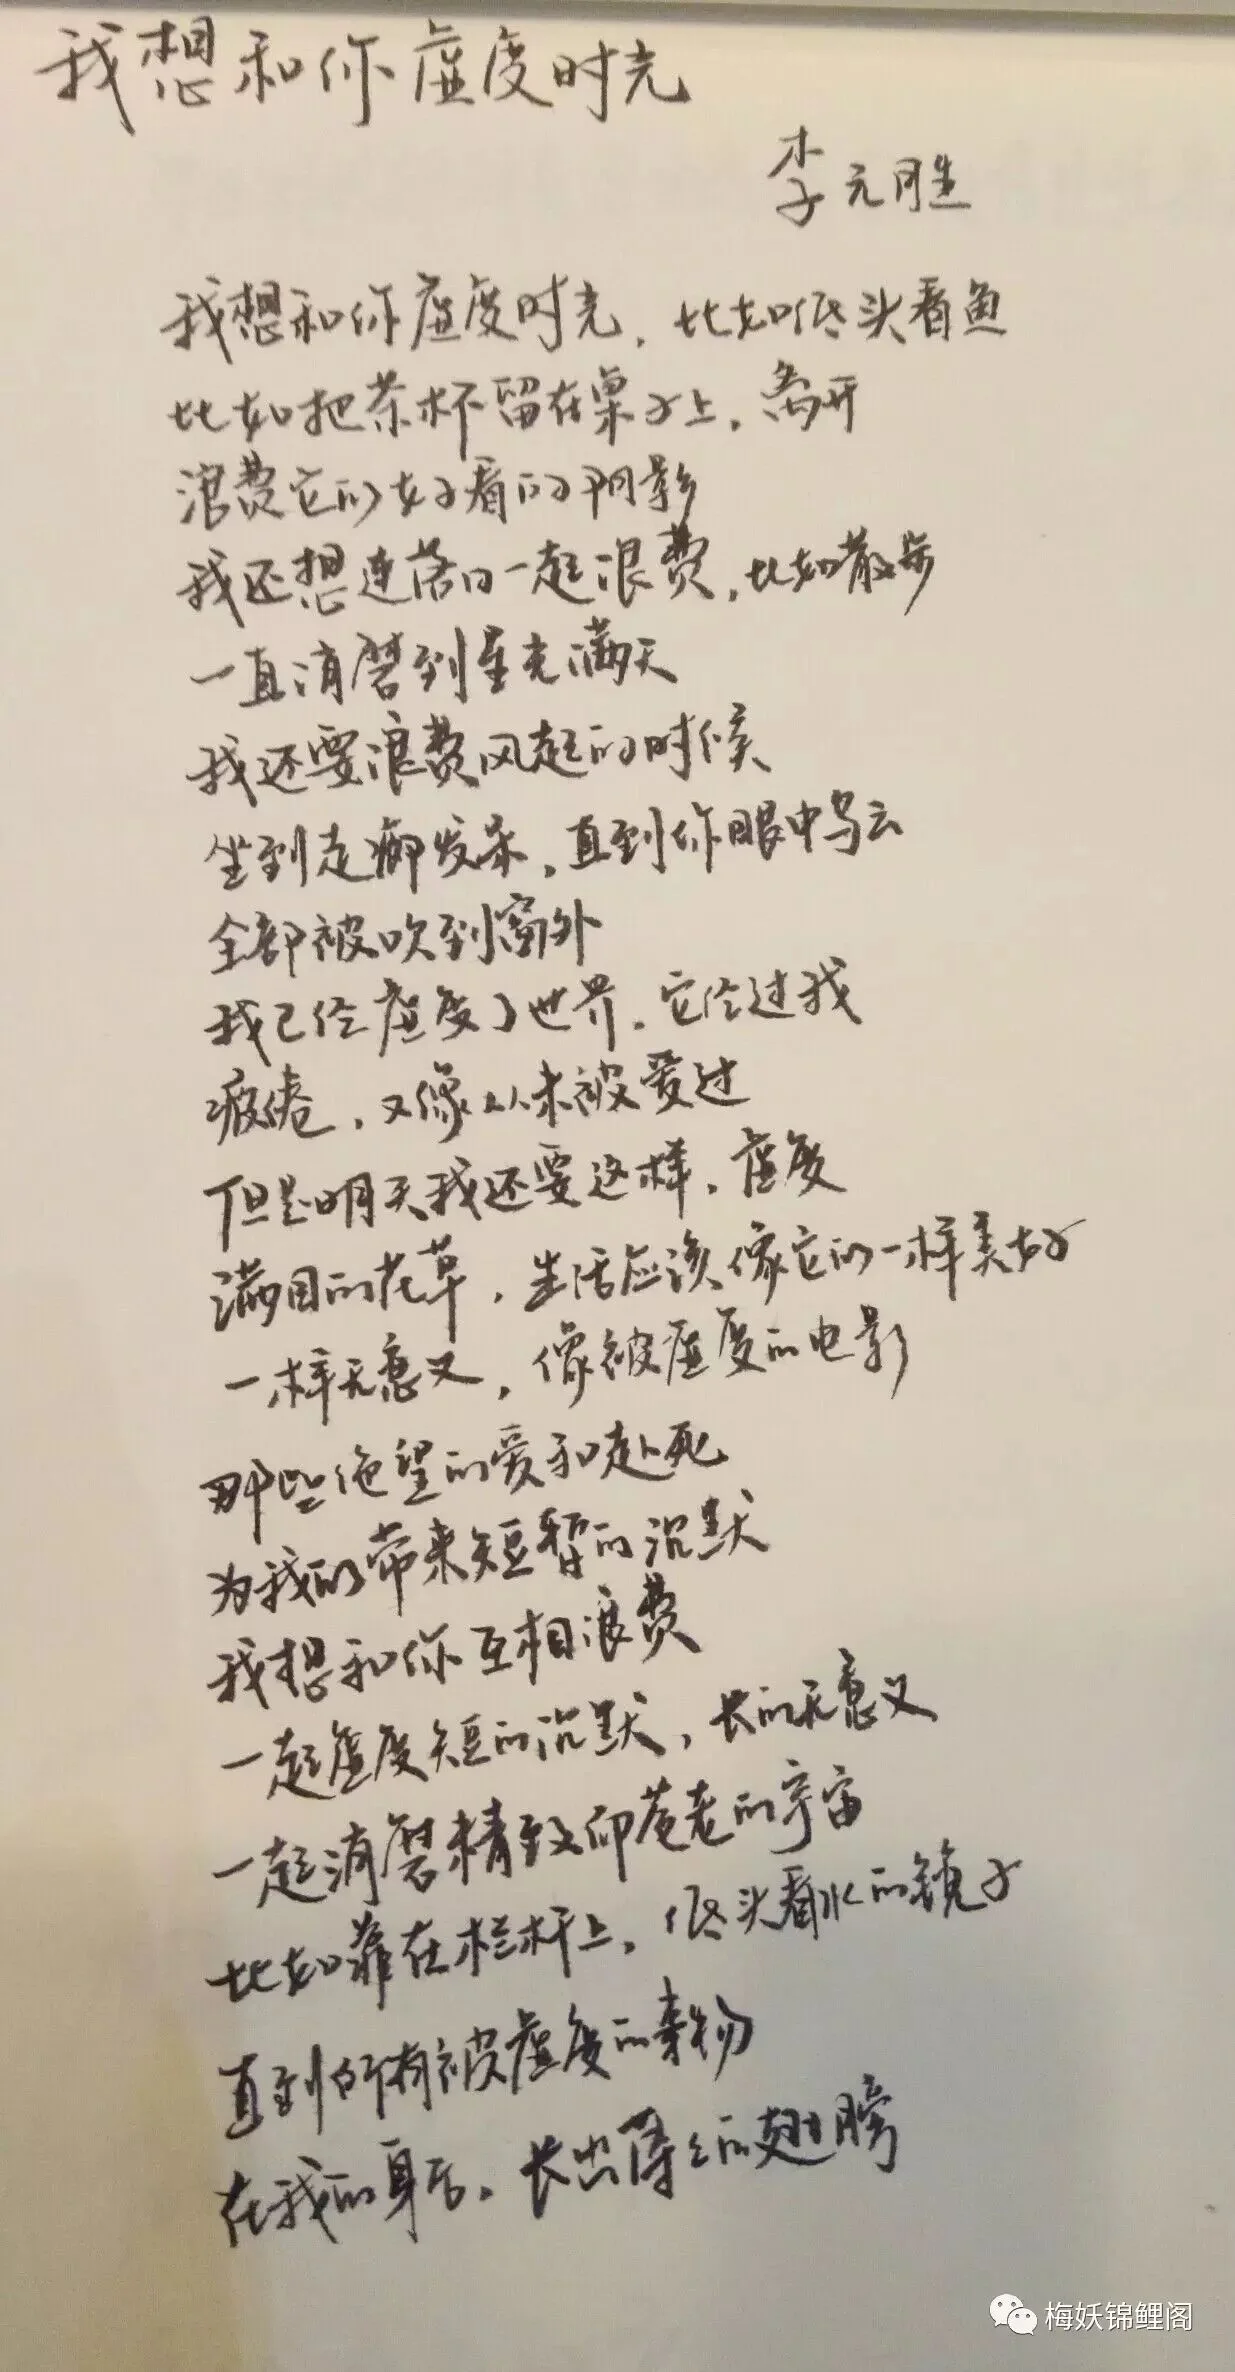 我想和你虚度时光
李元胜
我想和你虚度时光,比如低头看鱼
比如把茶杯留在桌子上,离开
浪费它们好看的阴影
我还想连落日一起浪费,比如散步
一直消磨到星光满天
我还要浪费风起的时候
坐到走廊发呆,直到你眼中乌云
全部被吹到窗外
我已经虚度了世界,它经过我
疲倦,又像从未被爱过
但是明天我还要这样,虚度
满目的花草,生活应该像它们一样美好
一样无意义,像被虚度的电影
那些绝望的爱和赴死
为我们带来短暂的沉默
我想和你互相浪费
一起虚度短的沉默,长的无意义
一起消磨精致而苍老的宇宙
比如靠在栏杆上,低头看水的镜子
直到所有被虚度的事物
在我们身后,长出薄薄的翅膀
梅妖锦鲤阁